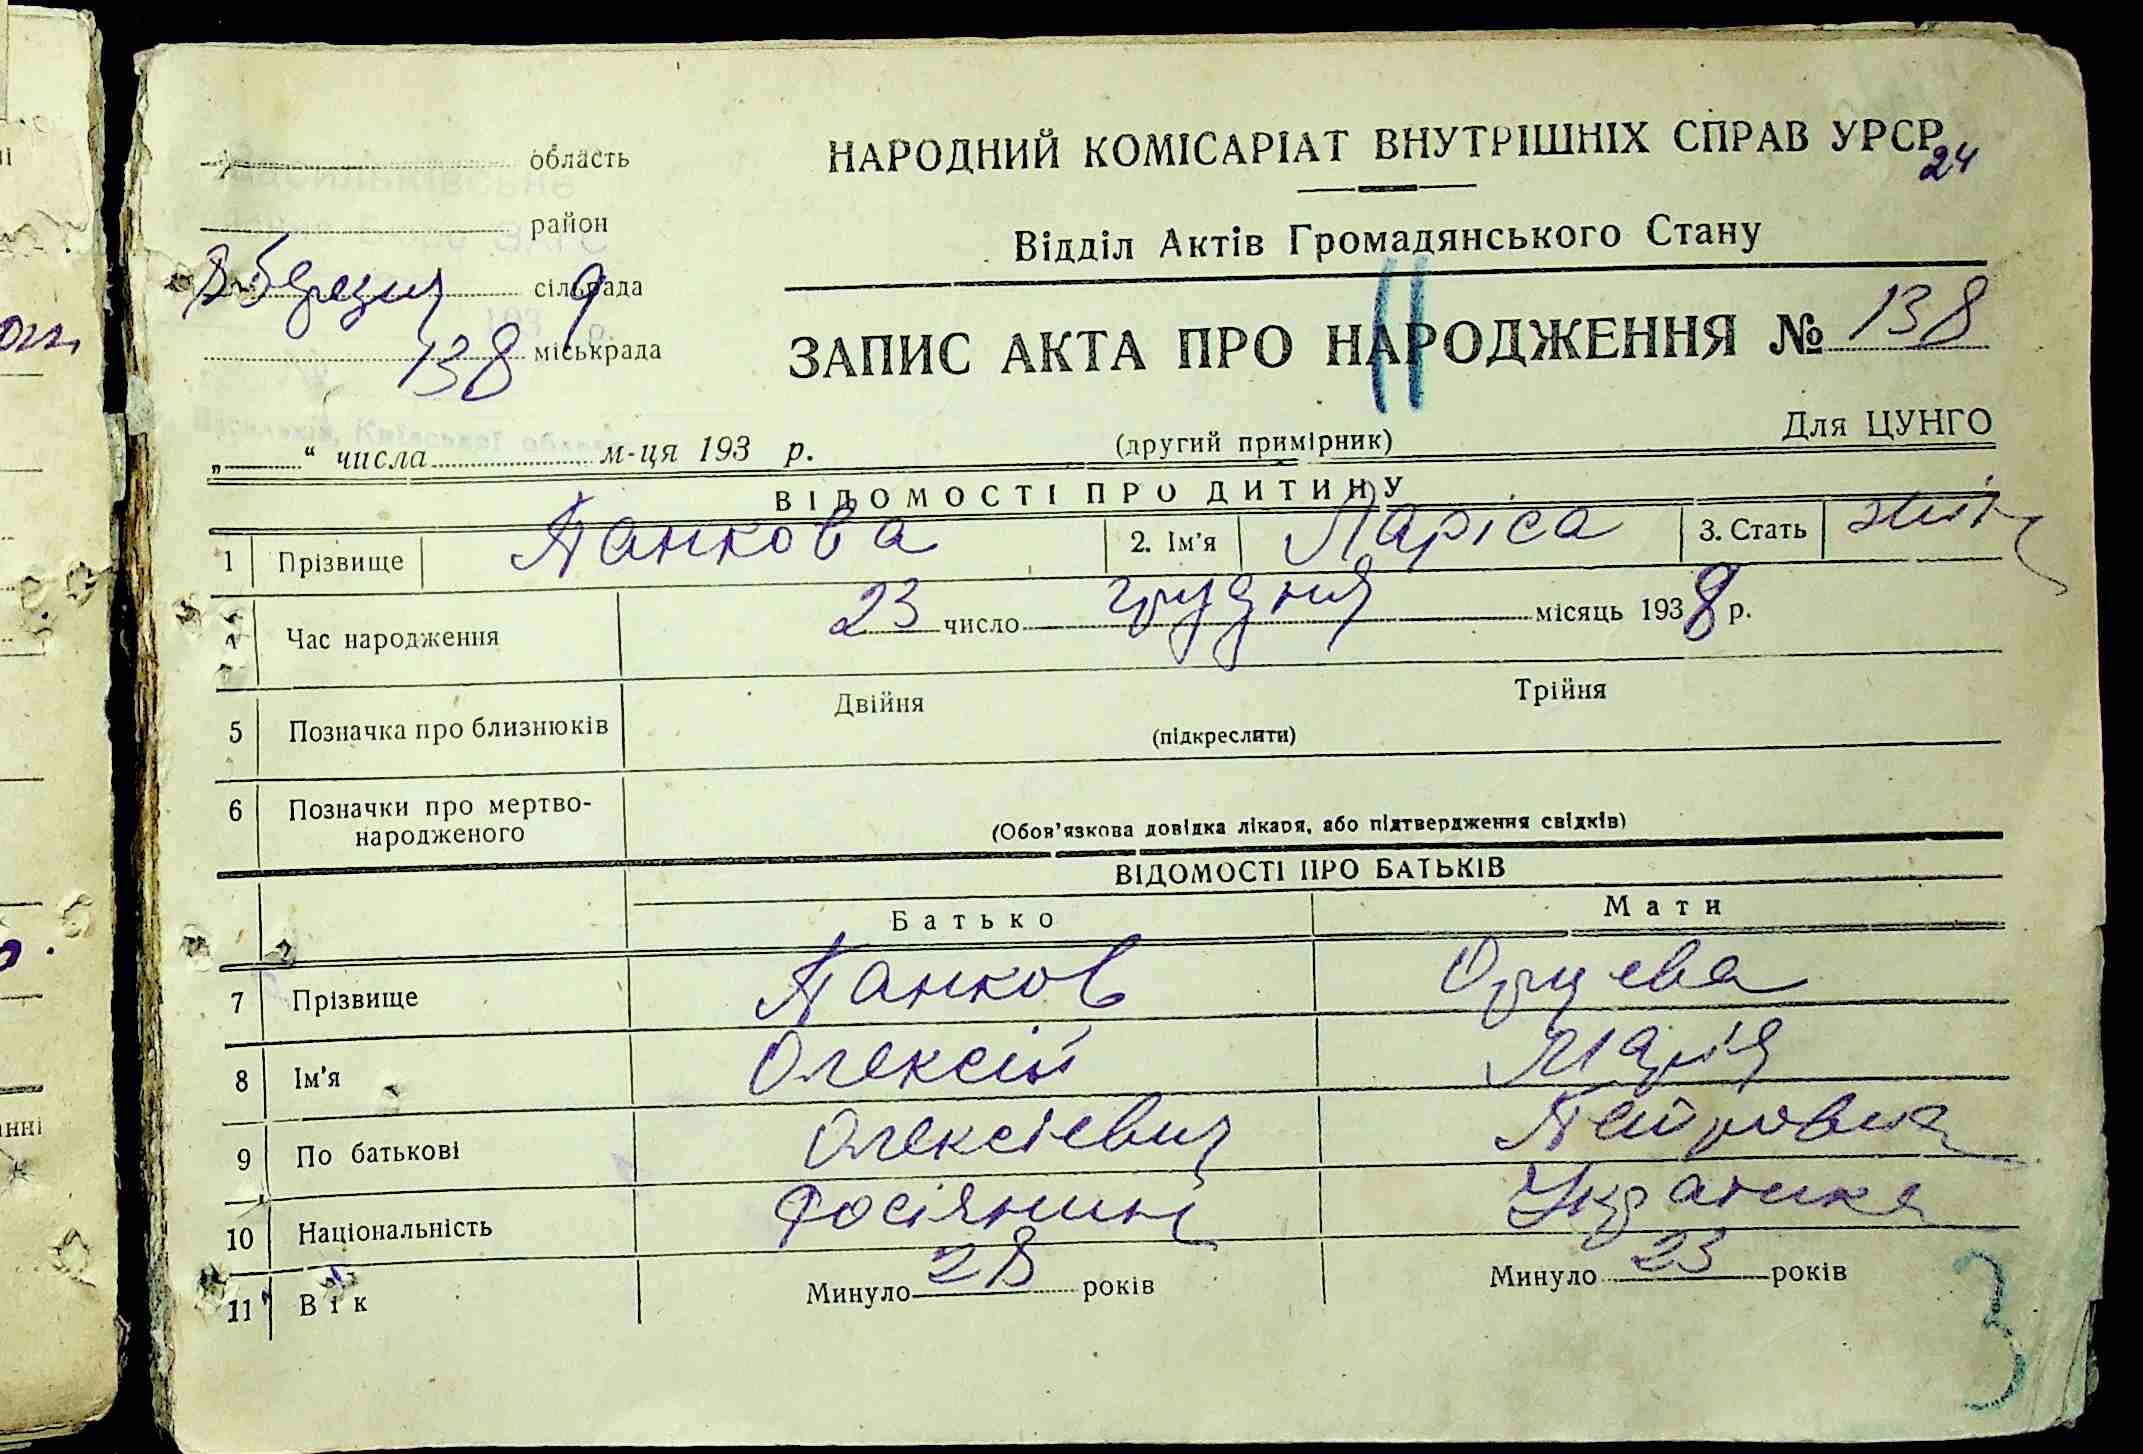 НАРОДНИЙ КОМІСАРІАТ ВНУТРІШНІХ СПРАВ УРСР
24
область
район
8 березня сільрада 9
138 міськрада
Відділ Актів Громадянського Стану
ЗАПИС АКТА ПРО НАРОДЖЕННЯ № 138
„ “ числа м-ця 193 р.
(другий примірник)
Для ЦУНГО
ВІДОМОСТІ ПРО ДИТИНУ
1 Прізвище Панкова 2. Ім'я Ларіса 3. Стать жін
Час народження 23 число грудня місяць 1938 р.
5 Позначка про близнюків Двійня Трійня
(підкреслити)
6 Позначки про мертво-
народженого
(Обов'язкова довідка лікаря, або підтвердження свідків)
ВІДОМОСТІ ПРО БАТЬКІВ
Батько Мати
7 Прізвище Панков
8 Ім'я Олексій Марія
9 По батькові Олексієвич Петровна
10 Національність Росіянин Українка
11 Вік Минуло 28 років Минуло 23 років
3